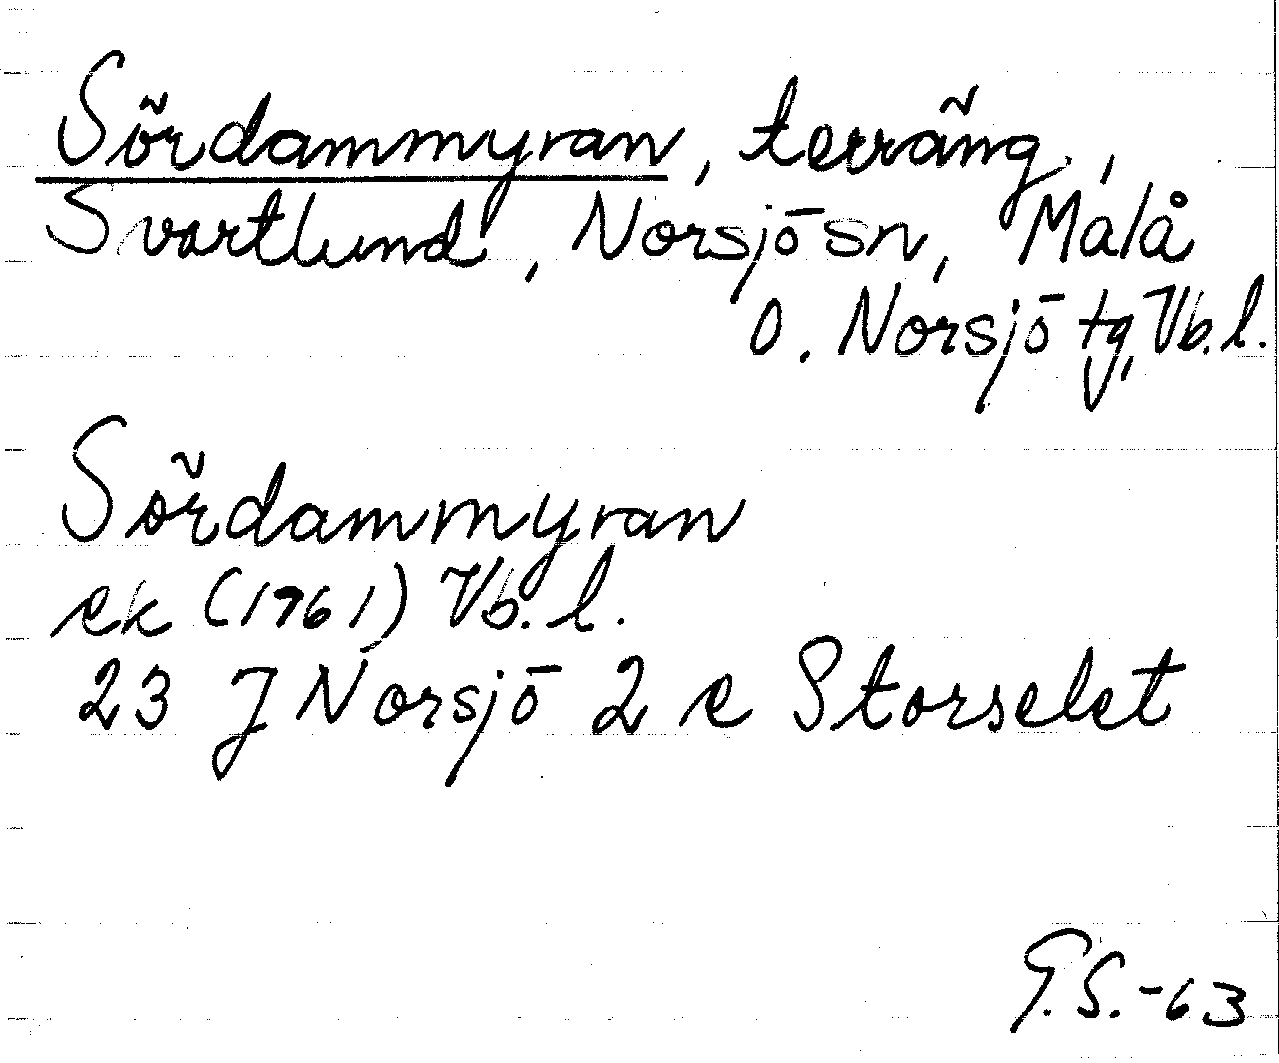 Sördammyran, terräng,
Svartlund, Norsjö sn, Malå
o. Norsjö tg, Vb. l.
Sördammyran
ek (1961) Vb. l.
23 J Norsjö 2 e Storselet
G.S.-63